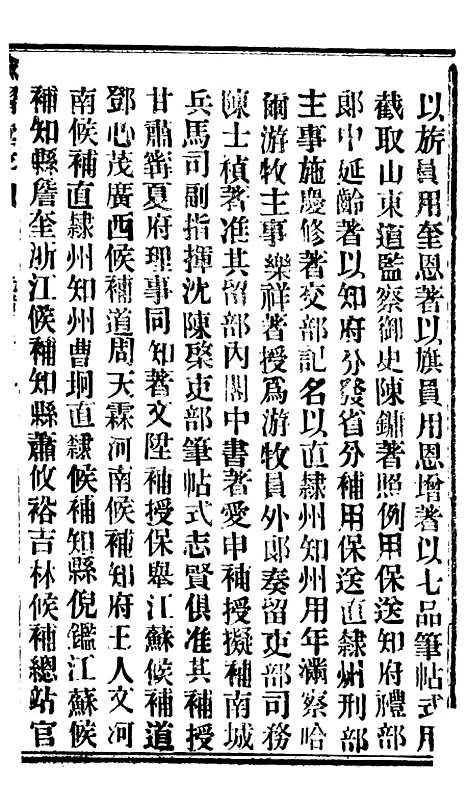 以旂員用奎恩著以旗員用恩增著以七品筆帖式用
截取山東道監察御史陳鏽著照例用保送知府禮部
郞中延齡著以知府分發省分補用保送直隸州刑部
主事施慶修著交部記名以直隸州知州用年滿察哈
爾游牧主事樂祥著授爲游牧員外郞奏留吏部司務
陳士楨著准其留部內閣中書著愛申補授擬補南城
兵馬司副指揮沈陳棨吏部筆帖式志賢俱准其補授
甘肅寧夏府理事同知著文陞補授保舉江蘇候補道
鄧心茂廣西候補道周天霖河南候補知府王人文河
南候補直隸州知州曹垌直隸候補知縣倪鑑江蘇候
補知縣詹奎浙江候補知縣蕭攸裕吉林候補總站官